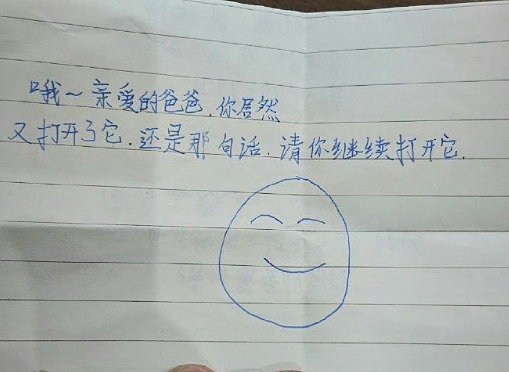 哦~亲爱的爸爸,你居然
又打开了它.还是那句话.请你继续打开它.